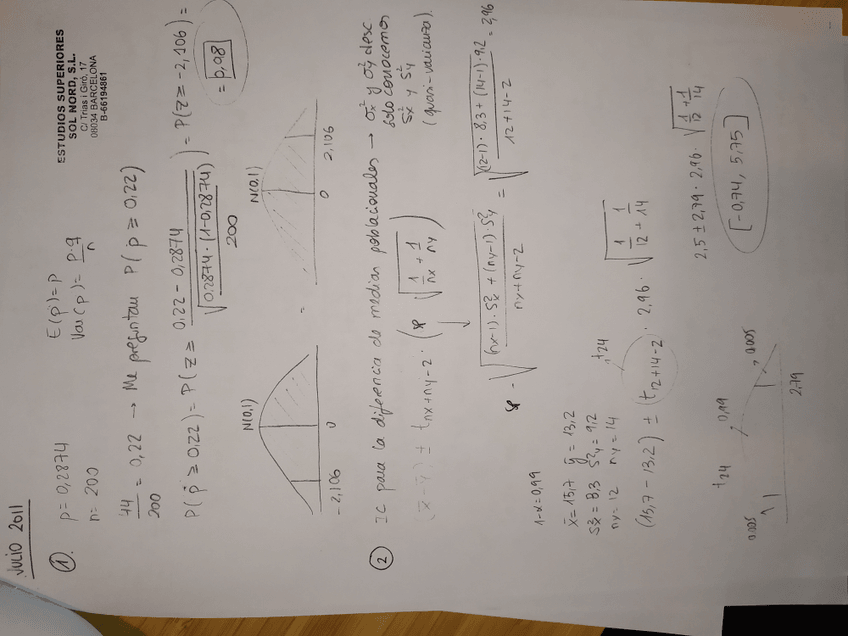 JULIO 2011
ESTUDIOS SUPERIORES
SOL NORD, S.L.
C/ Trias i Giró, 17
08034 BARCELONA
B-66194861
1. p = 0,2874
n = 200
E(p̂) = p
Var(p̂) = p·q/n
44/200 = 0,22 → Me preguntan P(p̂ ≥ 0,22)
P(p̂ ≥ 0,22) = P(Z ≥ (0,22 - 0,2874)/√(0,2874·(1-0,2874)/200)) = P(Z ≥ -2,106) =
= 0,98
N(0,1)
-2,106 0
=
N(0,1)
0 2,106
2 IC para la diferencia de medias poblacionales → σ²x y σ²y desc
solo conocemos
S²x y S²y
(quasi-varianza).
(x̄ - ȳ) ± tnx+ny-2 · (Sp √(1/nx + 1/ny))
Sp - √(((nx-1)·S²x + (ny-1)·S²y)/(nx+ny-2)) = √(((12-1)·8,3 + (14-1)·9,2)/(12+14-2)) = 2,96
1-α=0,99
x̄ = 15,7 ȳ = 13,2
S²x = 8,3 S²y = 9,2
nx = 12 ny = 14
t24
(15,7 - 13,2) ± (t12+14-2) · 2,96 · √(1/12 + 1/14)
t24
0,005 0,99 0,005
2,79
2,5 ± 2,79 · 2,96 · √(1/12 + 1/14)
[-0,74, 5,75]